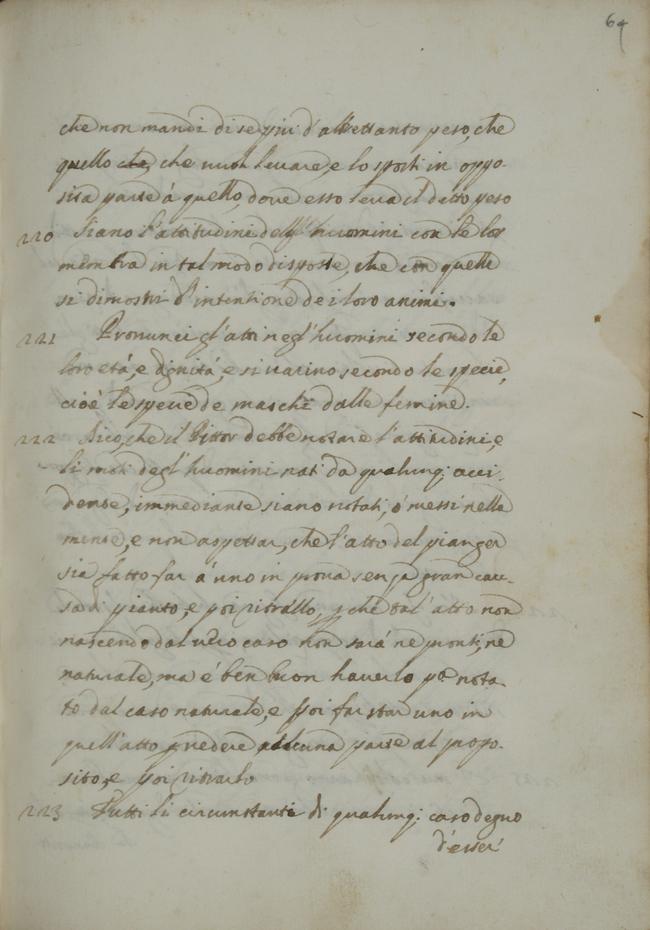 64
che non mandi di se piu d'altrettanto peso, che
quello che, che vuol levare, e lo sporti in oppo-
sita parte á quello, dove esso leva il detto peso
220 Siano l'attitudini degl'huomini con le lor
membra in tal modo disposte, che con quelle
si dimostri l'intentione de i loro animi.
221 Pronunci gl'atti negl'huomini secondo le
loro etá, e dignitá, e si varino secondo le specie,
cioè le specie de maschi dalle femine.
222 Dico, che il Pittor debbe notare l'attitudini, e
li moti degl'huomini nati da qualunq; acci-
dente, immediante siano notati, ó messi nella
mente, e non aspettar, che l'atto del pianger
sia fatto far á uno in prova senza gran cau-
sa di pianto, e poi ritrallo, p che tal'atto non
nascendo dal vero caso non sará ne pronti, ne
naturale, ma é ben buon haverlo po nota-
to dal caso naturale, e poi far star uno in
quell'atto p vedere alcuna parte al propo-
sito, e poi ritrarlo
223 Tutti li circunstanti di qualunq; caso degno
d'esser